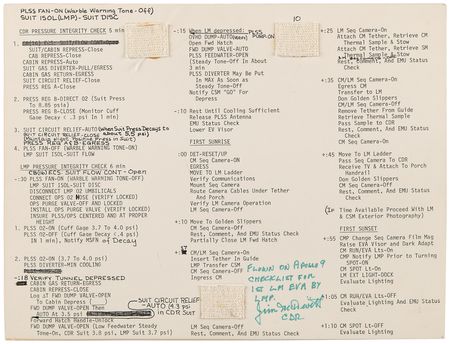 PLSS FAN-ON (Warble Warning Tone-Off)
SUIT ISOL (LMP)-SUIT DISC
CDR PRESSURE INTEGRITY CHECK 5 min
SUIT/CAB REPRESS-Close
CAB REPRESS-Close
CABIN REPRESS-Auto
SUIT GAS DIVERTER-PULL/EGRESS
CABIN GAS RETURN-EGRESS
SUIT CIRCUIT RELIEF-Close
PRESS REG A-Close
2. PRESS REG B-DIRECT O2 (Suit Press
To 8.85 psia)
PRESS REG B-CLOSE (Monitor Cuff
Gage Decay < .3 psi In 1 min)
3. SUIT CIRCUIT RELIEF-AUTO
PRESS REG A&B-EGRESS
4. PLSS FAN-OFF (WARBLE WARNING TONE-ON)
LMP SUIT ISOL-SUIT FLOW
LMP PRESSURE INTEGRITY CHECK 6 min
SUIT FLOW CONT - Open
-:30 PLSS FAN-ON (WARBLE WARNING TONE-OFF)
LMP SUIT ISOL-SUIT DISC
DISCONNECT LMP O2 UMBILICALS
CONNECT OPS O2 HOSE (VERIFY LOCKED)
OPS PURGE VALVE-OFF AND LOCKED
INSTALL OPS PURGE VALVE (VERIFY LOCKED)
INSURE PLSS/OPS CENTERED AND AT PROPER
HEIGHT
1. PLSS O2-ON (Cuff Gage 3.7 To 4.0 psi)
PLSS O2-OFF (Cuff Gage Decay <.4 psi
IN 1 min), Notify MSFN of Decay
2. PLSS O2-ON (3.7 To 4.0 psi)
PLSS DIVERTER-MIN COOLING
-:18 VERIFY TUNNEL DEPRESSED
CABIN GAS RETURN-EGRESS
CABIN REPRESS-Close
Log at FWD DUMP VALVE-OPEN
To Cabin Depress ( )
FWD DUMP VALVE-OPEN Then
AUTO At 3.5 psia
SUIT CIRCUIT RELIEF
-AUTO (4.3 psi
in CDR Suit
Forward Hatch Handle-Unlock
FWD DUMP VALVE-OPEN (Low Feedwater Steady
Tone-On, CDR Suit 3.8 psi, LMP Suit 3.7 psi)
-:15 When LM depressed:
OVHD DUMP-AUTO
PLSS PUMP-ON
Open Fwd Hatch
FWD DUMP VALVE-AUTO
(Steady Tone-Off In About
3 min
PLSS DIVERTER May Be Put
In MAX As Soon as
Steady Tone-Off)
Notify CSM "GO" For
Depress
-:10 Rest Until Cooling Sufficient
Release PLSS Antenna
EMU Status Check
Lower EV Visor
FIRST SUNRISE
+:00 DET-RESET/UP
CM Seq Camera-ON
EGRESS
Move To LM Ladder
Verify Communications
Mount Seq Camera
Route Camera Cables Under Tether
And Porch
Verify LM Camera Operation
LM Seq Camera-Off
+:10 Move To Golden Slippers
CM Seq Camera-Off
Rest, Comment, and EMU Status Check
Partially Close LM Fwd Hatch
CM/LM Seq Camera-On
Insert Tether In Guide
LMP Transfer CSM
CM Seq Camera-On
Ingress CM
LM Seq Camera-Off
Rest, Comment, and EMU Status
Check
10
+:25 LM Seq Camera-On
Attach CM Tether, Retrieve CM
Thermal Sample & Stow
Attach CM Tether, Retrieve SM
Thermal Sample & Stow
Rest, Comment, And EMU Status
Check
+:35 CM/LM Seq Camera-On
Remove Tether From Guide
Transfer to LM
Don Golden Slippers
CM/LM Seq Camera-Off
Retrieve Thermal Sample
Pass Sample to CDR
Rest, Comment, And EMU Status
Check
+:45 Move To LM Ladder
LM Seq Camera-On
Pass Seq Camera To CDR
Receive TV & Attach To Porch
Handrail
Don Golden Slippers
LM Seq Camera-Off
Rest, Comment, And EMU Status
Check
(In Time Available Proceed With LM
& CSM Exterior Photography)
FIRST SUNSET
+:55 CMP Change Seq Camera Film Mag
Raise EVA Visor and Dark Adapt
CM RUN/EVA Lt-On
CMP Notify LMP Prior to Turning
SPOT-On
CM SPOT Lt-On
LM EXT LIGHT-DOCK
Evaluate Lighting
+1:05 CM RUN/EVA Lt-Off
Evaluate Lighting
EMU Status Check
+1:10 CM SPOT Lt-Off
Evaluate Lighting
FLOWN ON APOLLO 9
CHECKLIST FOR
1st LM EVA BY
LMP.
Jim McDivitt
CDR